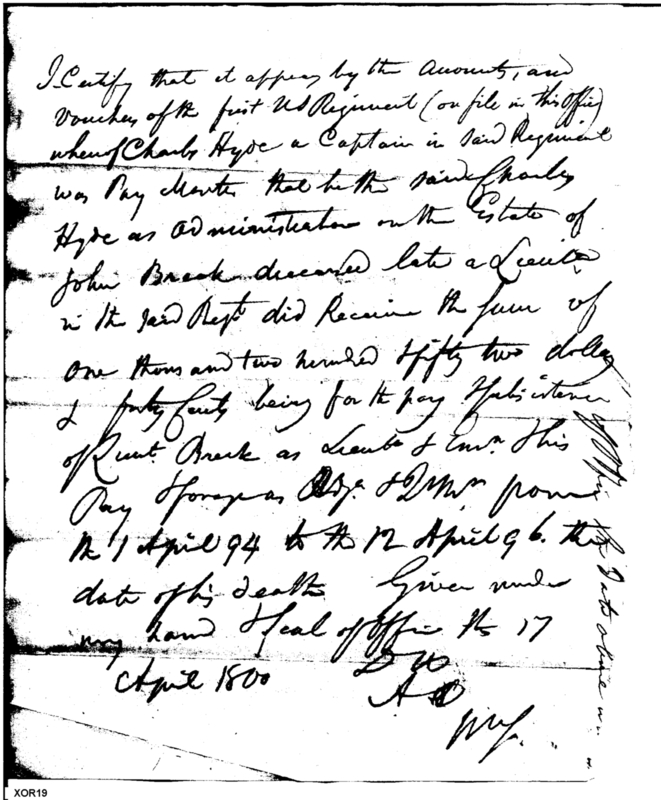 I Certify that it appears by the Accounts, and
Vouchers of the first US Regiment (on file in this office)
whereof Charles Hyde a Captain in said Regiment
was Pay Master that he the said Charles
Hyde as Administrator on the Estate of
John Breck deceased late a Lieut
in the said Regt did Receive the sum of
One thousand two hundred & fifty two dollars
& forty Cents being for the pay & subsistence
of Lieut. Breck as Lieut & Ensn & his
Pay & forage as Adjt & QMr from
the 1 April 94 to the 12 April 96. the
date of his death Given under
my hand & seal of office this 17
April 1800
of Office the Date above
XOR19